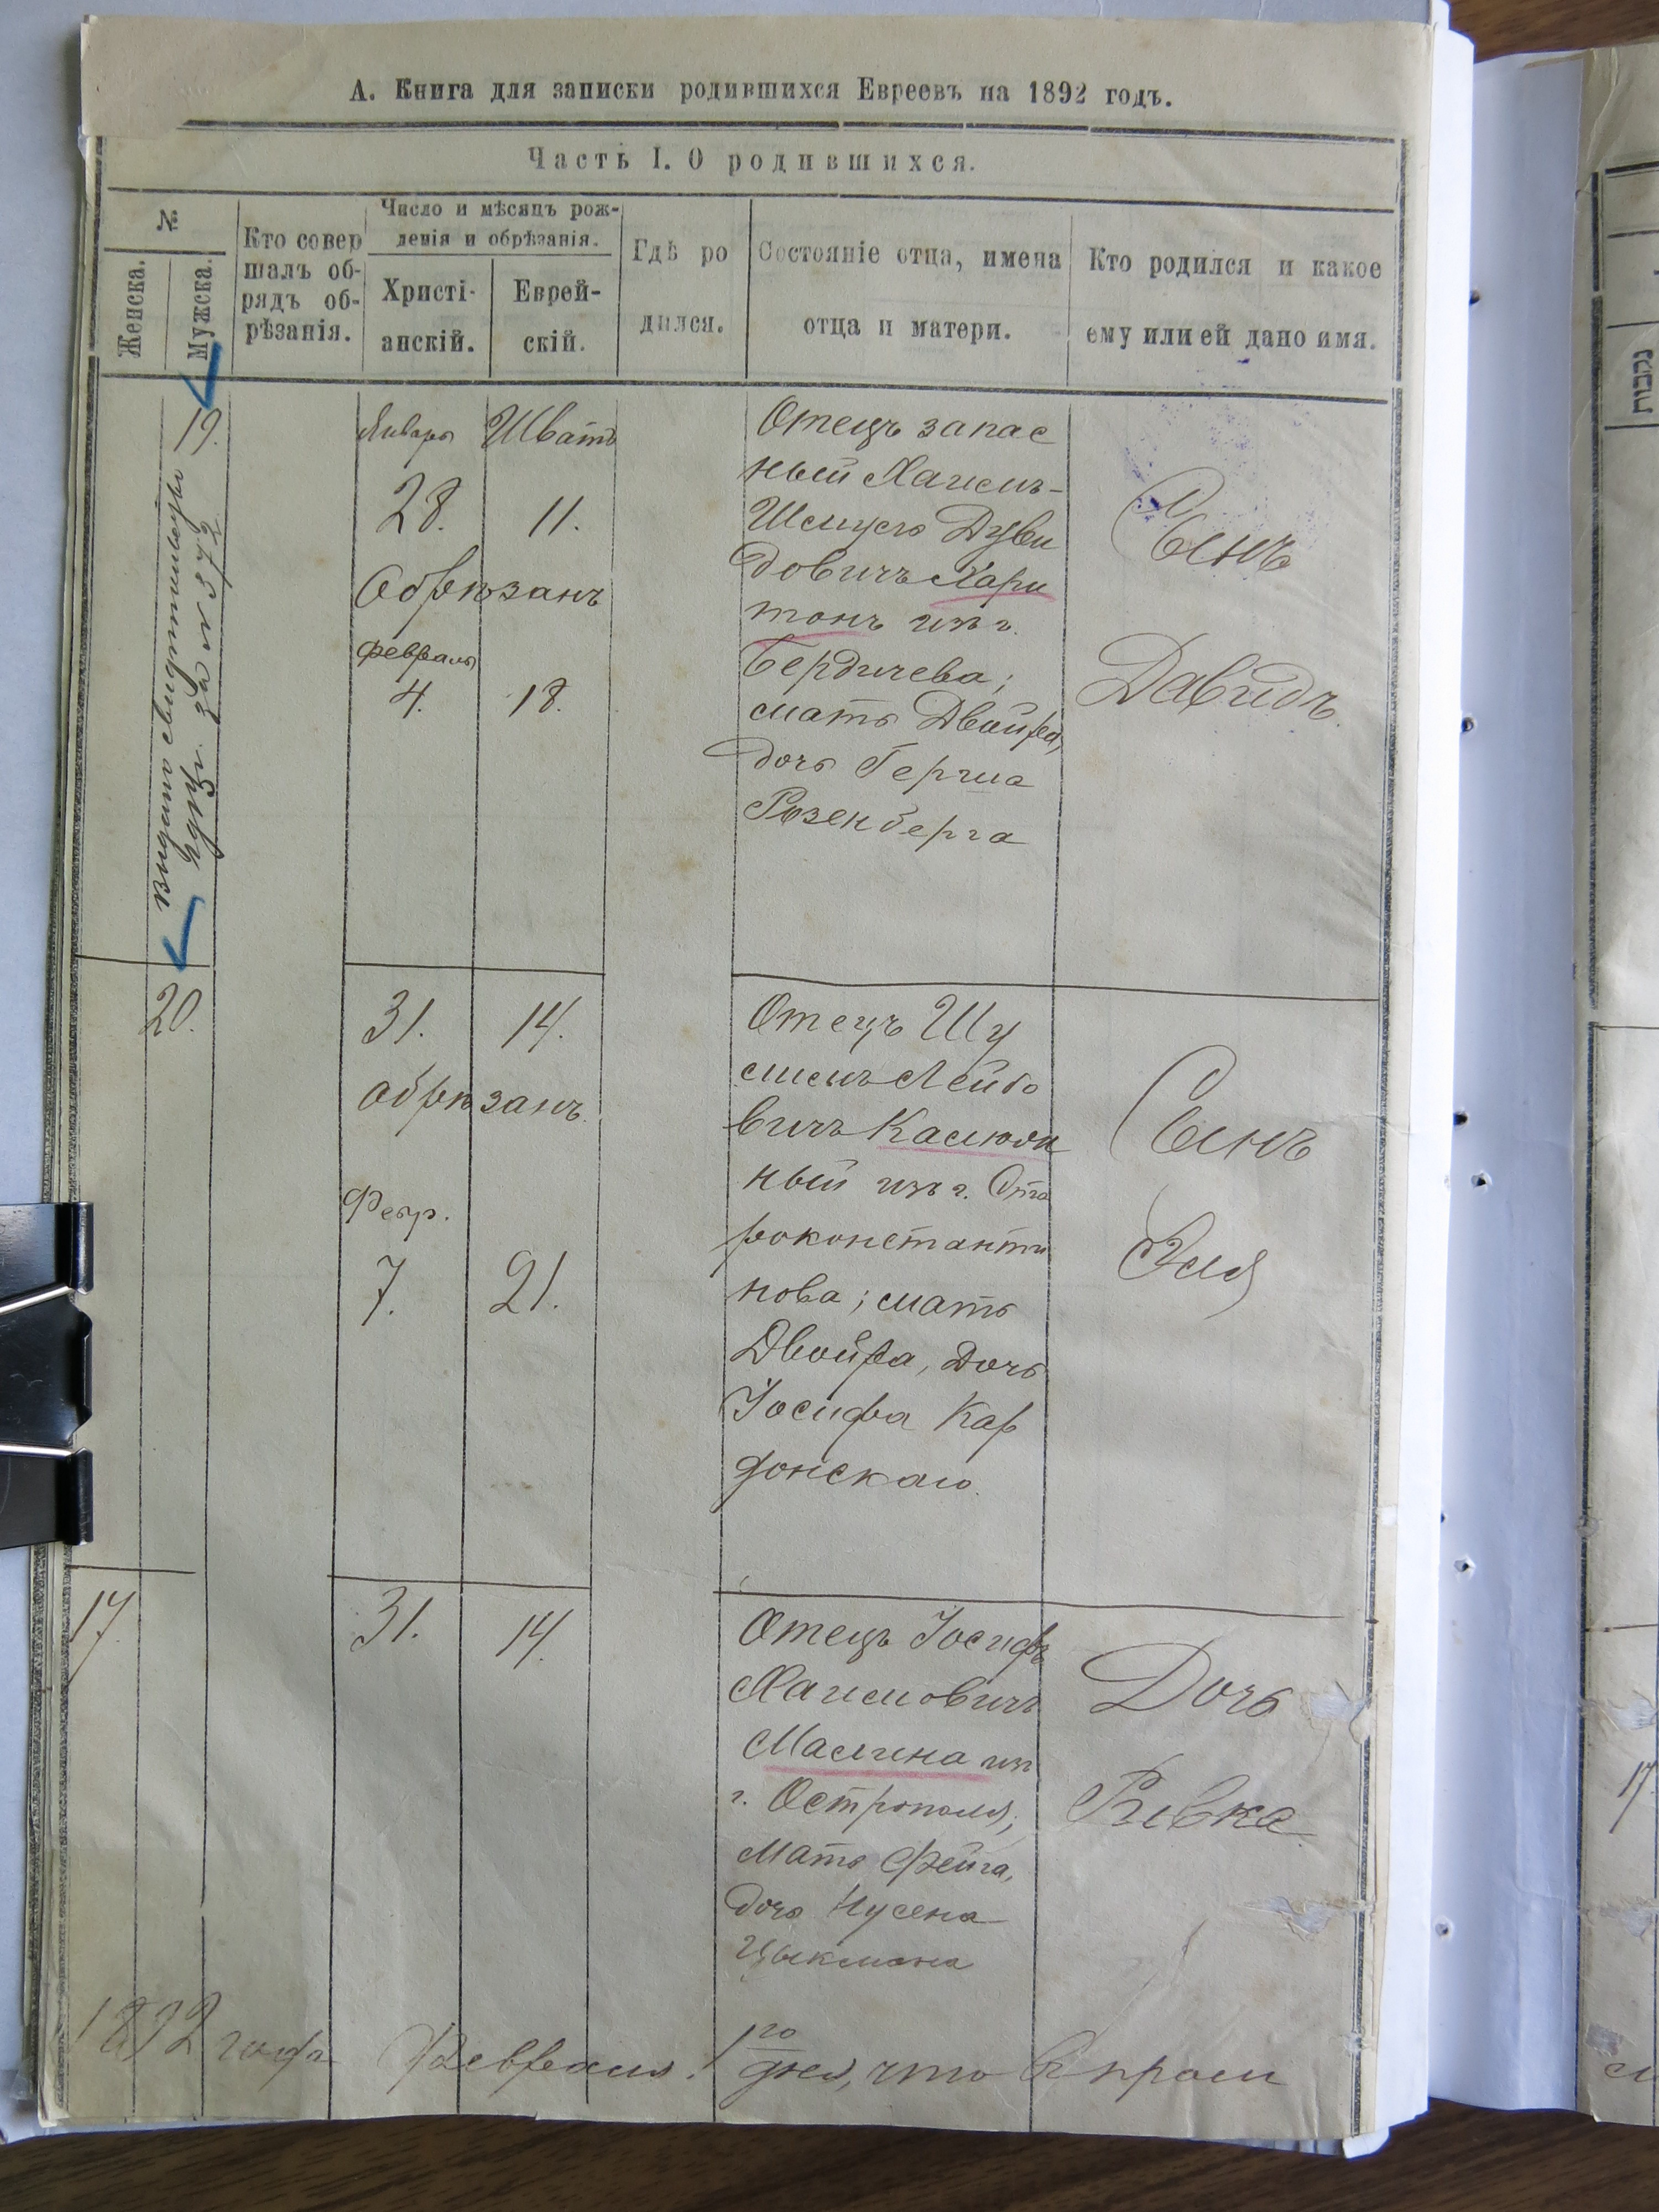 А. Книга для записки родившихся Евреевъ на 1892 годъ.
Часть I. О родившихся.
№
Женска.
Мужска.
Кто совер
шалъ об-
рядъ об-
рѣзанія.
Число и мѣсяцъ рож-
денія и обрѣзанія.
Христі-
анскій.
Еврей-
скій.
Гдѣ ро
дился.
Состояніе отца, имена
отца и матери.
Кто родился и какое
ему или ей дано имя.
19.
Выдано свидѣтельство
за № 372
Январь
28.
Обрѣзанъ
Февраль
4.
Шватъ
11.
18.
Отецъ запас
ный Хаимъ-
Шмуль Дуви
довичъ Хари
тонъ изъ г.
Бердичева;
мать Двойра,
дочь Герша
Розенберга
Сынъ
Давидъ.
20.
31.
14.
обрѣзанъ.
Февр.
7.
21.
Отецъ Шу
лимъ Лейбо
вичъ Камюш
ный изъ г. Ста
роконстанти
нова; мать
Двойра, дочь
Іосифа Кар
донскаго.
Сынъ
Эля
17.
31.
14.
Отецъ Іосифъ
Хаимовичъ
Маслина изъ
г. Острополя;
Мать Фейга,
дочь Нусена
Цыкмана
Дочь
Ривка.
1892 года Февраля 1го дня, что въ прош
17.